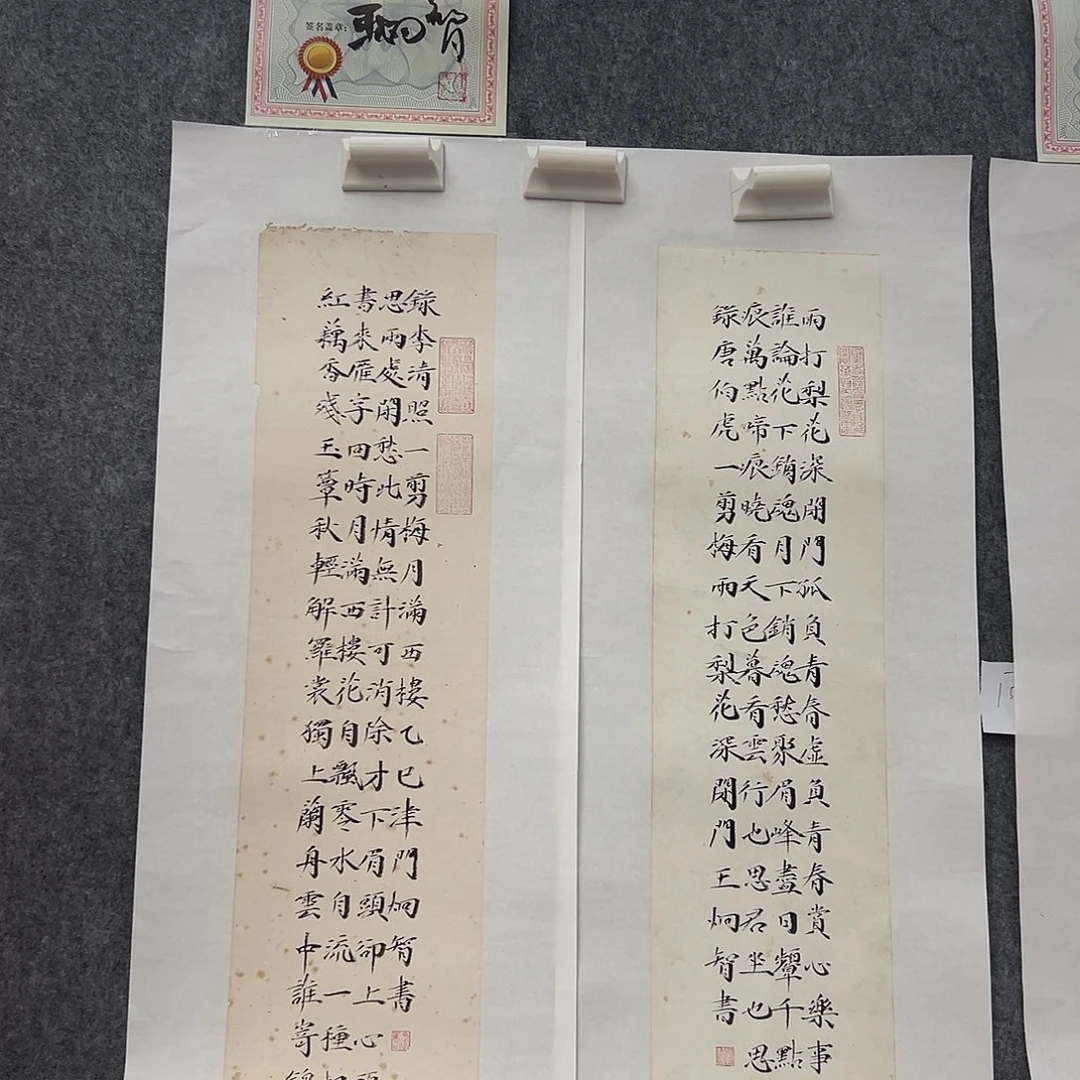 签名盖章：王炯智
紅藕香殘玉蕈秋輕解羅裳獨上蘭舟雲中誰寄錦
書來雁字回時月滿西樓花自飄零水自流一種相
思雨處閑愁此情無計可消除才下眉頭卻上心頭
錄李清照一剪梅月滿西樓乙巳津門炯智書
雨打梨花深閉門孤負青春虛負青春賞心樂事
誰論花下銷魂月下銷魂愁聚眉峰盡日顰千點
痕萬點啼痕曉看天色暮看雲行也思君坐也思
錄唐伯虎一剪梅雨打梨花深閉門王炯智書